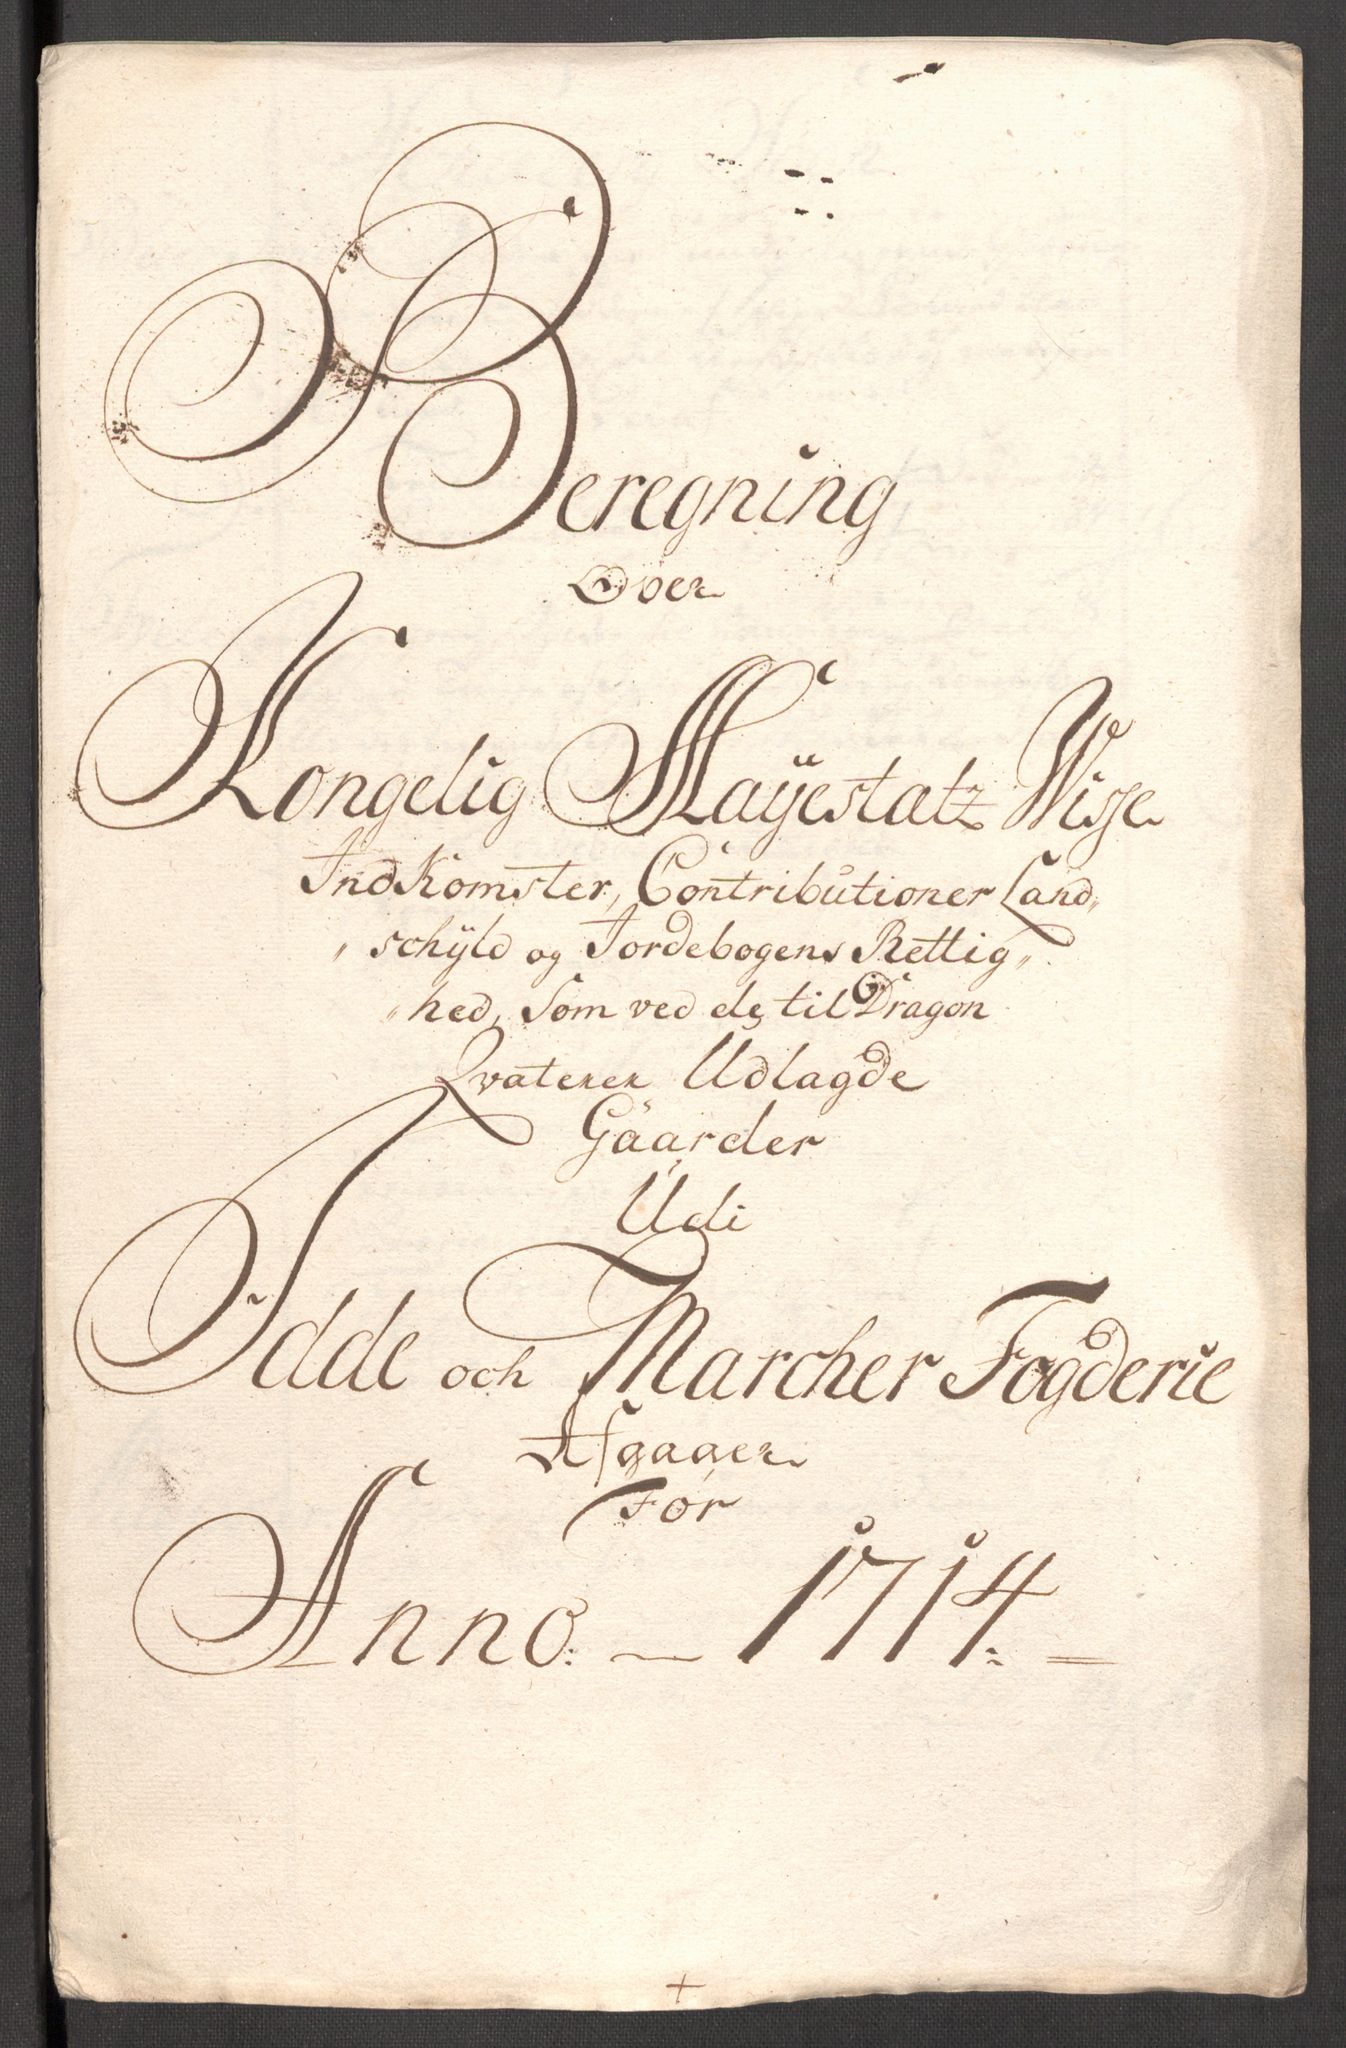 Beregning
Over
Kongelig Mayestatz Wisse
Indkomster, Contributioner Land„
„schyld og Jordebogens Rettig„
„hed, Som ved de til Dragon
Qvaterer Udlagde
Gaarder
Udi
Idde och Marcher Fogderie
Afgaaer
For
Anno: — 1714. =